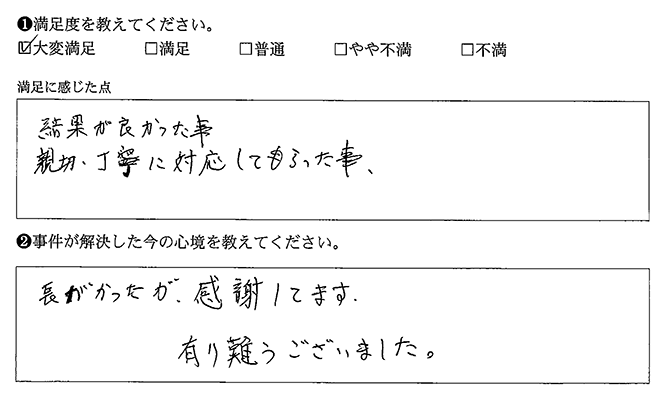 ❶満足度を教えてください。
☑大変満足 □満足 □普通 □やや不満 □不満
満足に感じた点
結果が良かった事
親切、丁寧に対応してもらった事、
❷事件が解決した今の心境を教えてください。
長がかったが、感謝してます.
有り難うございました。